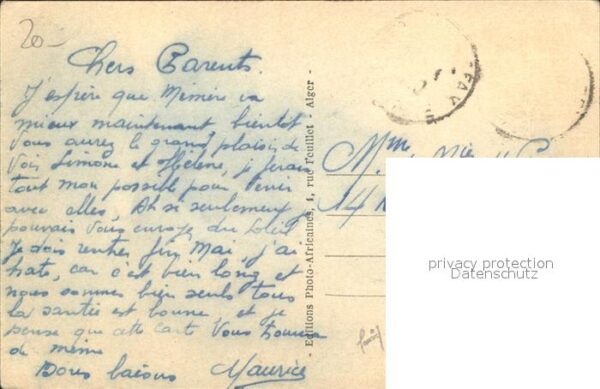 20-
Chers Parents.
J'espère que Mémère va
mieux maintenant bientôt
Vous aurez le grand plaisir de
Voir Simone et Hélène, je ferais
tout mon possible pour venir
avec elles, Ah si seulement je
pouvais Vous envoyé du Soleil
Je dois rentrer fin Mai, j'ai
hate, car c'est bien long et
nous sommes bien seuls tous
la santée est bonne et je
pense que cette carte Vous trouvera
de même
Bons baisers Maurice
- Editions Photo-Africaines, 4, rue Feuillet - Alger -
Mme
14
privacy protection
Datenschutz